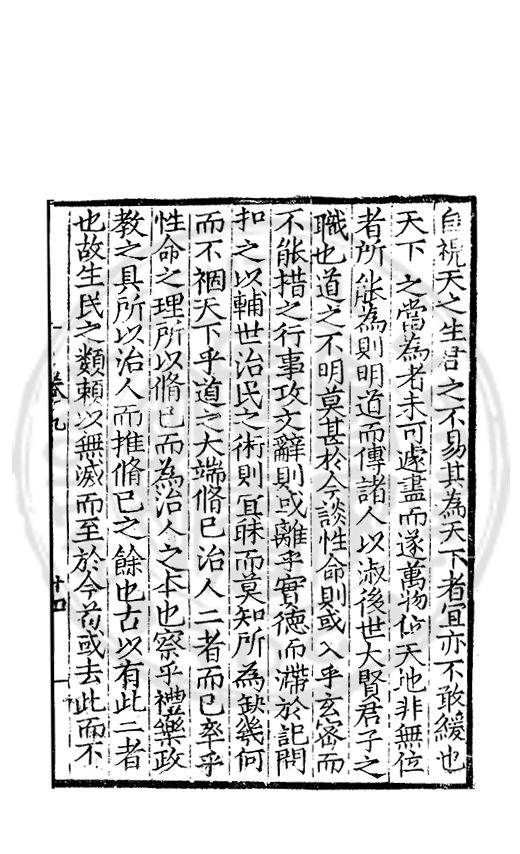 自視天之生君之不易其為天下者宜亦不敢緩也
天下之當為者未可遽盡而遂萬物位天地非無位
者所能為則明道而傳諸人以淑後世大賢君子之
職也道之不明莫甚於今談性命則或入乎玄密而
不能措之行事攻文辭則或離乎實德而滯於記問
扣之以輔世治民之術則冥昧而莫知所為缺幾何
而不禍天下乎道之大端脩己治人二者而已率乎
性命之理所以脩己而為治人之本也察乎禮樂政
教之具所以治人而推脩己之餘也古以有此二者
也故生民之類賴以無滅而至於今苟或去此而不
卷九
十四